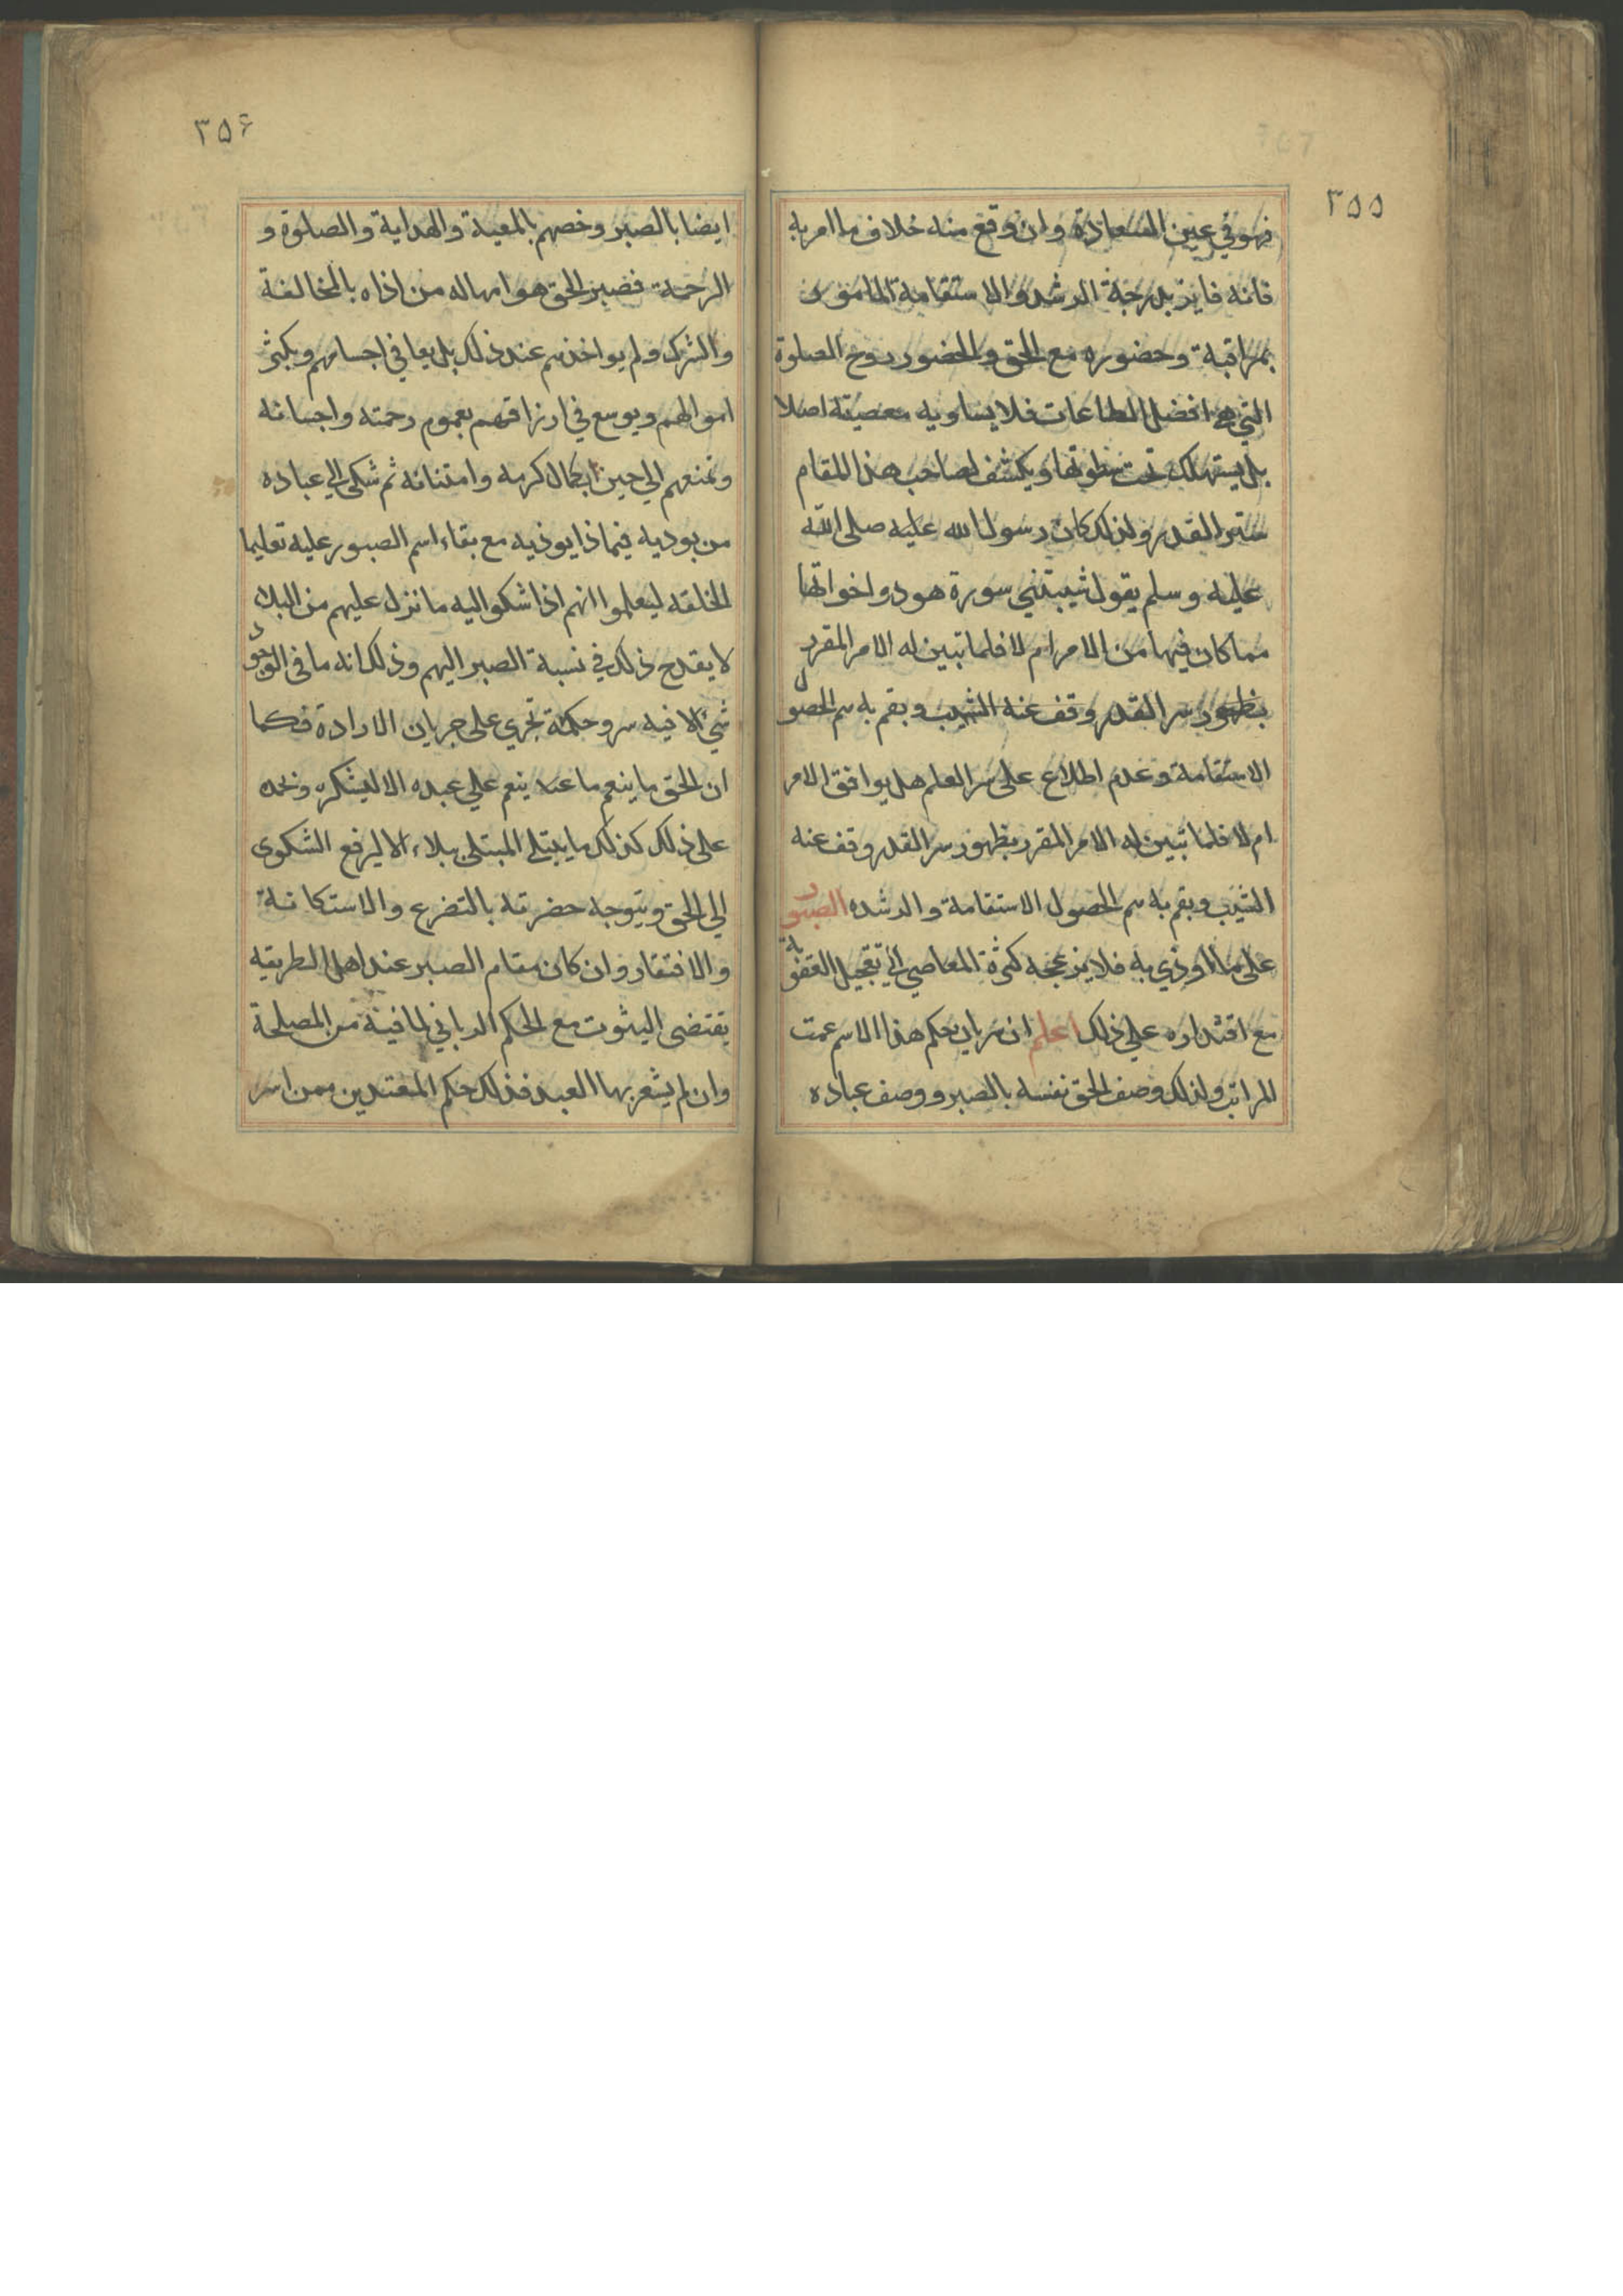 ٣٥٥
فهو في عين السعادة وان وقع منه خلاف ما امر به
فانه فايز بدرجة الرشد والاستقامة المامور
بمراقبة وحضوره مع الحق والحضور روح الصلوة
التي هي افضل الطاعات فلا يساويه معصيته اصلا
بل يستهلك تحت سطوتها ويكشف لصاحب هذا المقام
ستر القدر ولذلك كان رسول الله عليه صلى الله
عليه وسلم يقول شيبتني سورة هود واخواتها
مما كان فيها من الامر ام لا فلما تبين له الامر المقرر
بظهور سر القدر وقف عنه الشيب وبقم به سم الحصول
الاستقامة وعدم اطلاع على سر العلم هل يوافق الامر
ام لا فلما تبين له الامر المقرر بظهور سر القدر وقف عنه
الشيب وبقم به سم الحصول الاستقامة والرشده الصبور
على ما اوذي به فلا يزعجه كثرة المعاصي الى تعجيل العقوبة
مع اقتداره على ذلك اعلم ان سريان حكم هذا الاسم عمت
المراتب ولذلك وصف الحق نفسه بالصبر ووصف عباده
٣٥۶
ايضا بالصبر وخصهم بالمعية والهداية والصلوة و
الرحمة فصبر الحق هو امهاله من اذاه بالمخالفة
والشرك ولم يواخذهم عند ذلك بل يعافي اجسامهم ويكثر
اموالهم ويوسع في ارزاقهم بعموم رحمته واحسانه
وتمنعهم الى حين بكمال كرمه وامتنانه ثم شكى الي عباده
من يوديه فيماذا يوذيه مع بقاء اسم الصبور عليه تعليما
لخلقه ليعلموا انهم اذا شكوا اليه ما نزل عليهم من البلاء
لا يقدح ذلك في نسبة الصبر اليهم وذلك انه ما في الوجود
شيء الا فيه سر وحكمة تجري على جريان الارادة فكما
ان الحق ما ينعم ينعم علي عبده الا ليشكره ونحمده
على ذلك كذلك ما يبتلي المبتلى ببلاء الا ليرفع الشكوى
الي الحق ويتوجه حضرته بالتضرع والاستكانة
والافتقار وان كان مقام الصبر عند اهل الطريقه
يقتضى الثبوت مع الحكم الرباني لما فيه من المصلحة
وان لم يشعر بها العبد فذلك حكم المقتدين ممن اسر